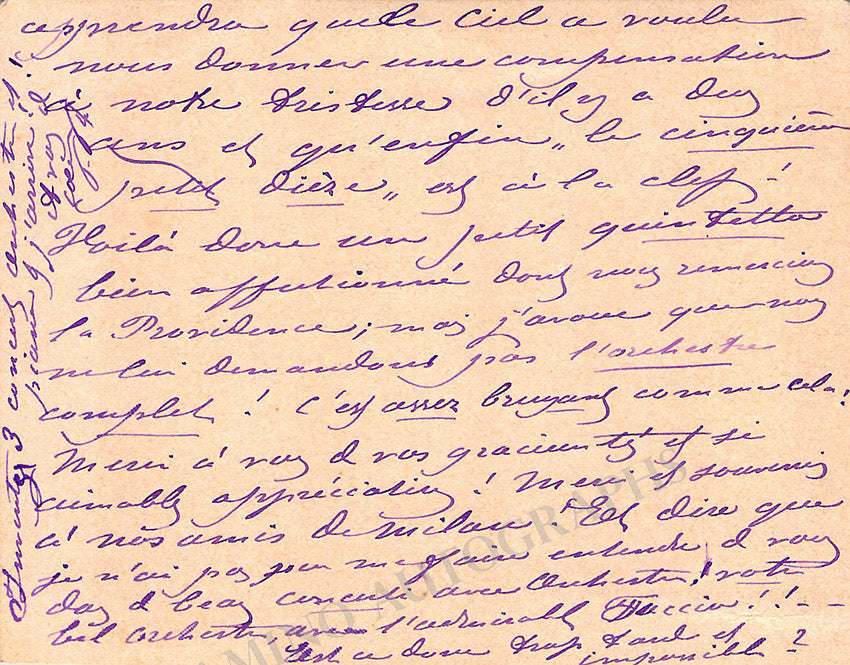 apprendra que le Ciel a voulu
nous donner une compensation
à notre tristesse d'il y a deux
ans et qu'enfin „le cinquième
petit dièze„ est à la clef!
Voilà donc un petit quintetto
bien affectionné dont nous remercions
la Providence; mais j'avoue que nous
ne lui demandons pas l'orchestre
complet! C'est assez bruyant comme cela!
Merci à vous de vos gracieuses et si
aimables appréciations! Merci et souvenirs
à nos amis de Milan! Et dire que
je n'ai pas pu me faire entendre de vous
dans de beaux concerts avec Orchestre, votre
bel orchestre, avec l'admirable Faccio!! --
Est ce donc trop tard et
impossible?
3 concerts orchestre et
piano & j'arrive!
et vous
CAMINO AUTOGRAPHS